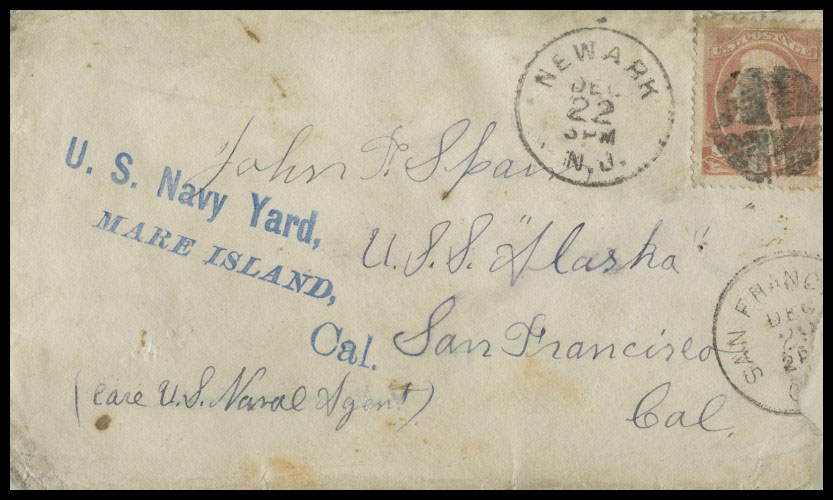 NEWARK
DEC
22
3 PM
N.J.
U.S. POSTAGE
John F. Spain
U.S.S. "Alaska"
San Francisco
Cal.
(Care U.S. Naval Agent)
U. S. Navy Yard,
MARE ISLAND,
Cal.
SAN FRANC
DEC